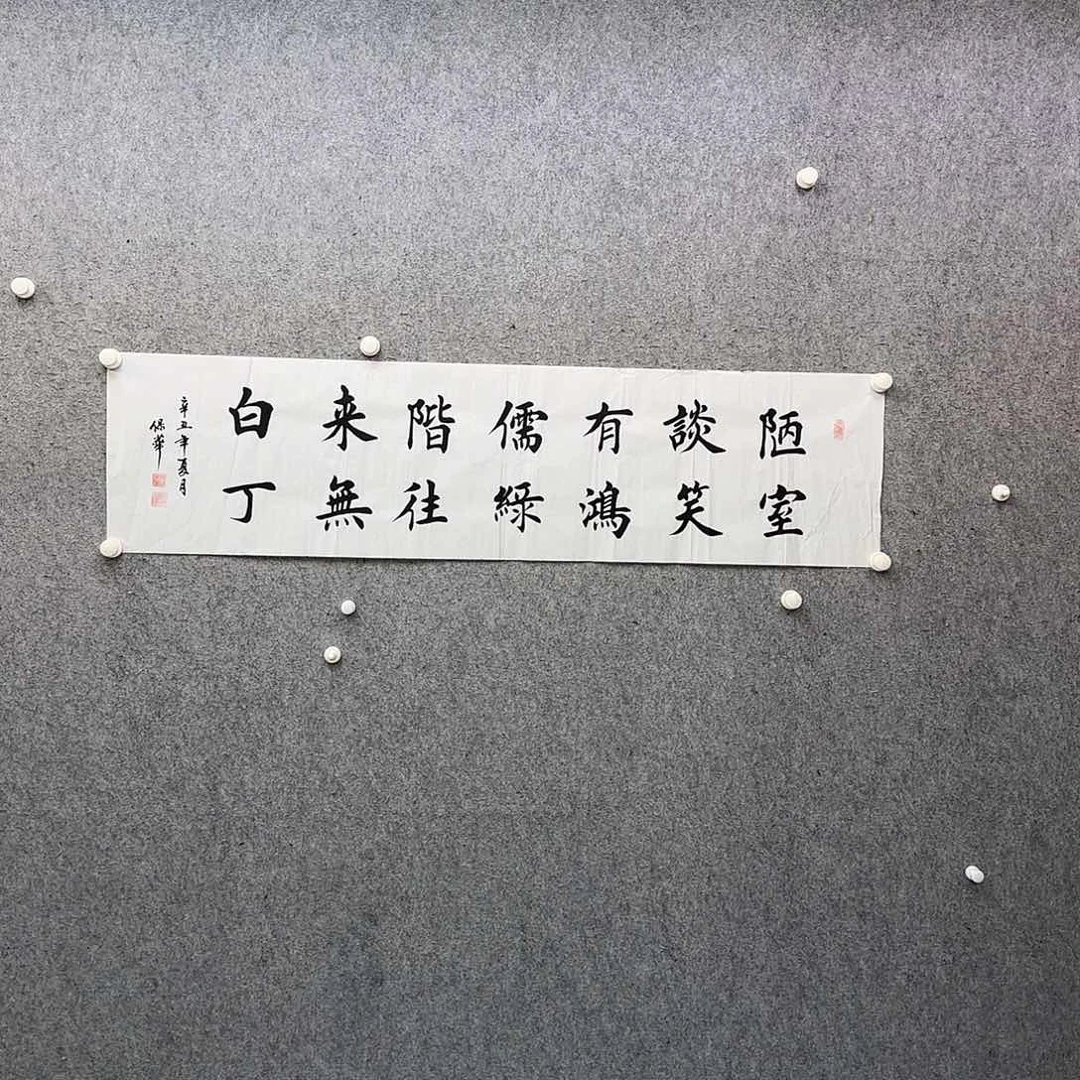 陋室
談笑
有鴻
儒綠
階往
来無
白丁
辛丑年夏月
保華